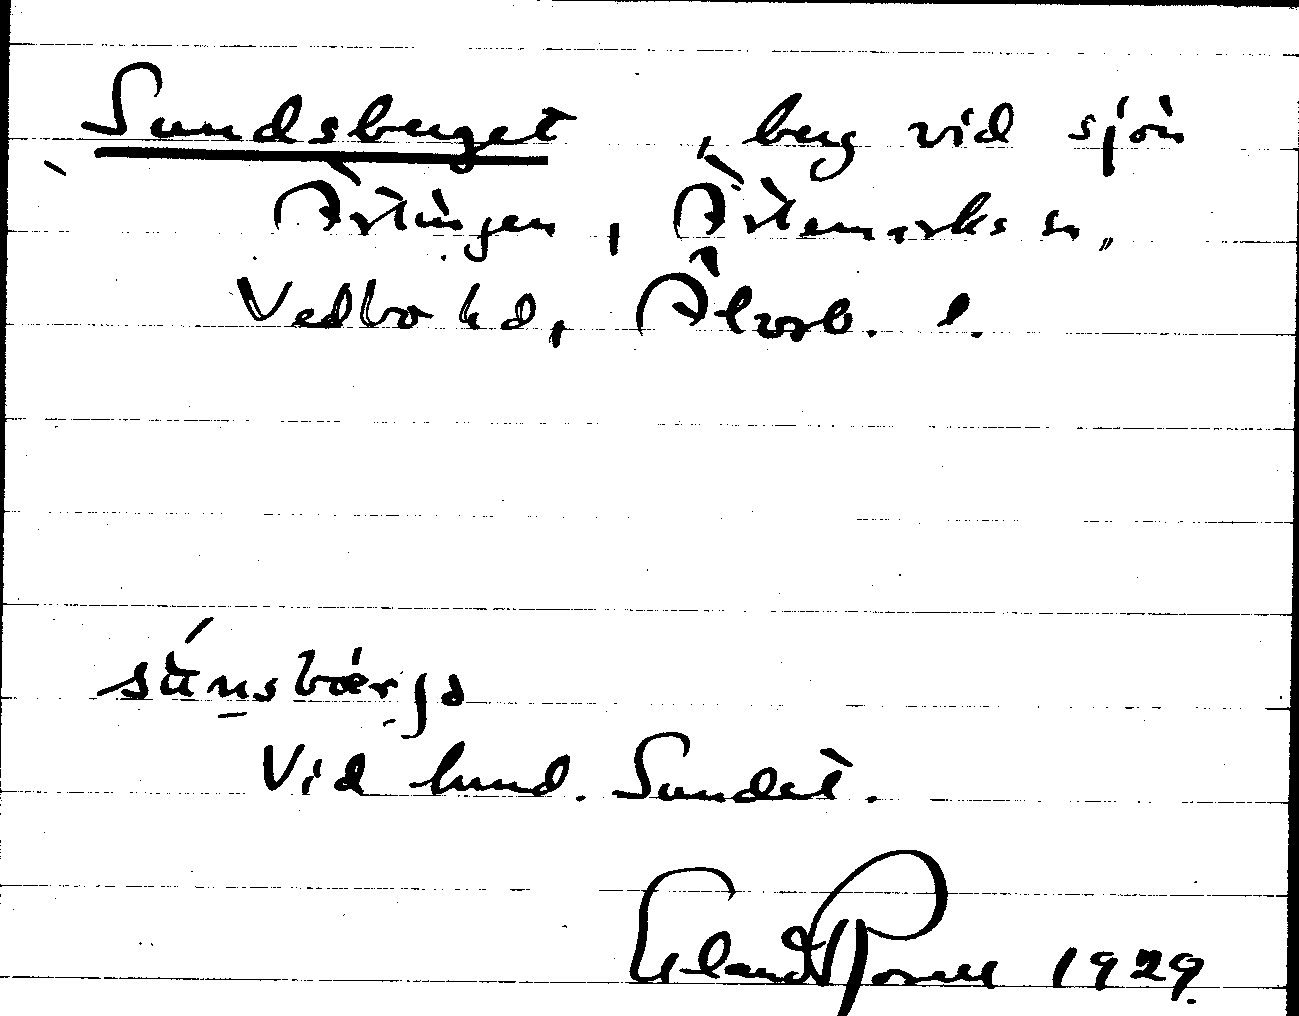 Sundsberget, berg vid sjön
Ärtingen, Ärtemarks sn,
Vedbo hd, Älvsb. l.
su̇́n̠sbærjə
Vid hmd. Sundet.
Erland Rosell 1929.